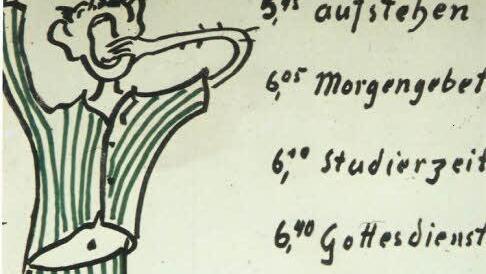 5,45 aufstehen
6,05 Morgengebet
6,10 Studierzeit
6,40 Gottesdienst